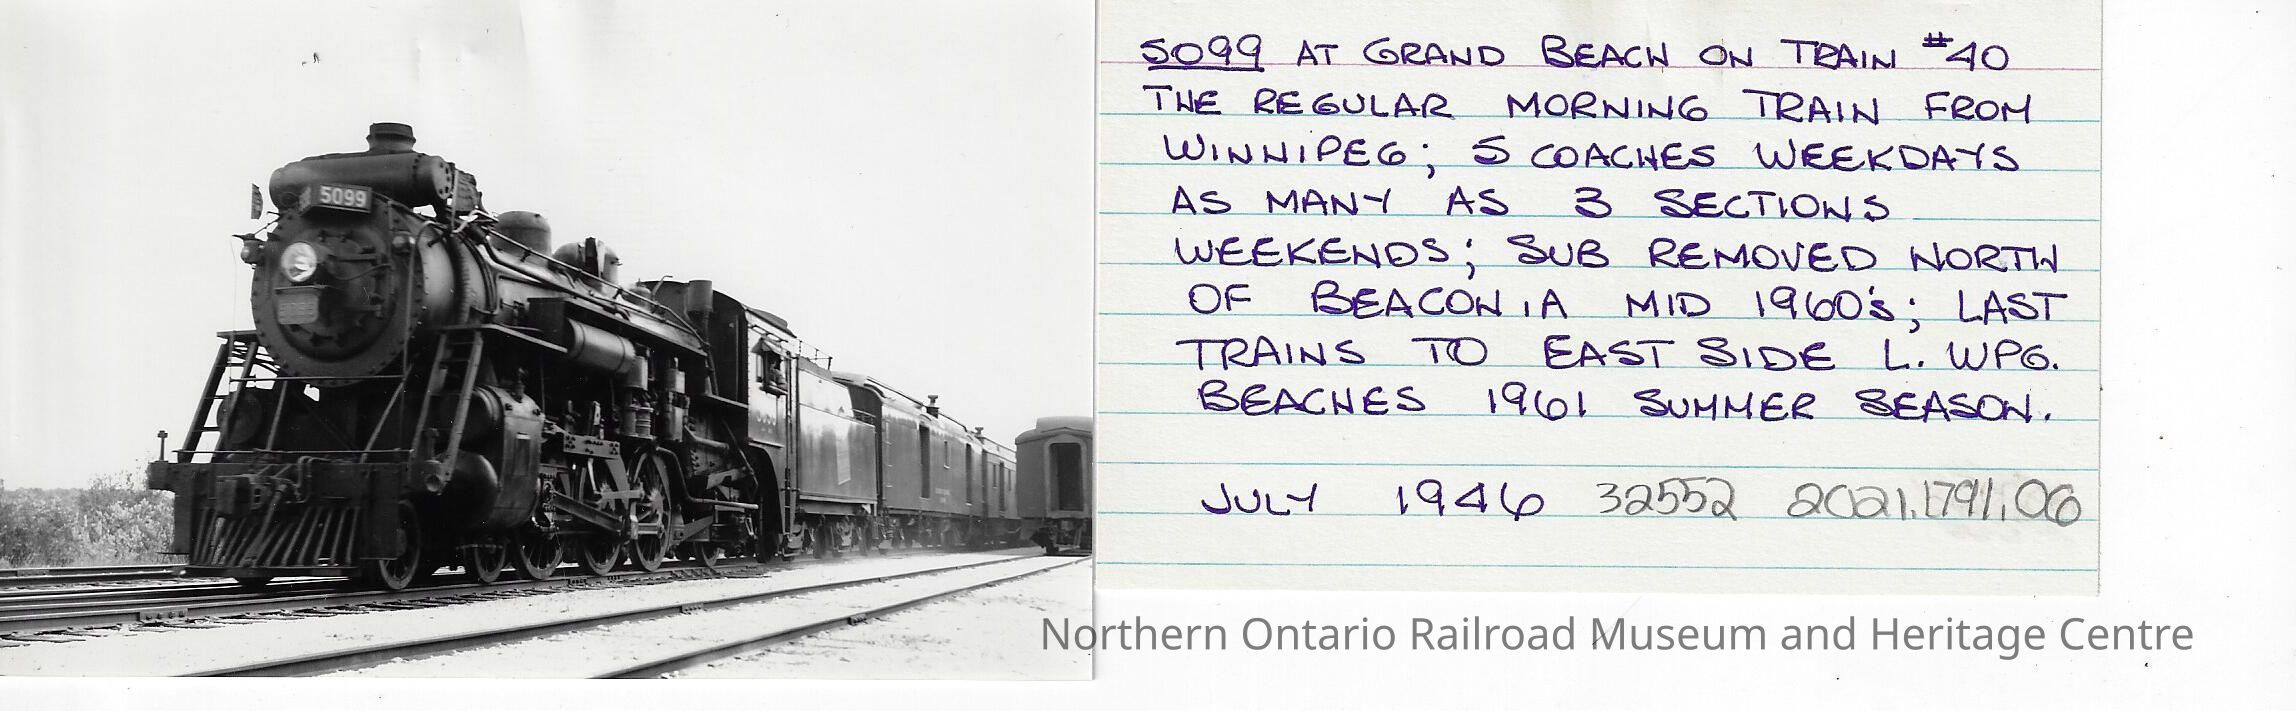 5099
5099 AT GRAND BEACH ON TRAIN #40
THE REGULAR MORNING TRAIN FROM
WINNIPEG; 5 COACHES WEEKDAYS
AS MANY AS 3 SECTIONS
WEEKENDS; SUB REMOVED NORTH
OF BEACONIA MID 1960's; LAST
TRAINS TO EAST SIDE L. WPG.
BEACHES 1961 SUMMER SEASON.
JULY 1946 32552 2021.1791.06
Northern Ontario Railroad Museum and Heritage Centre